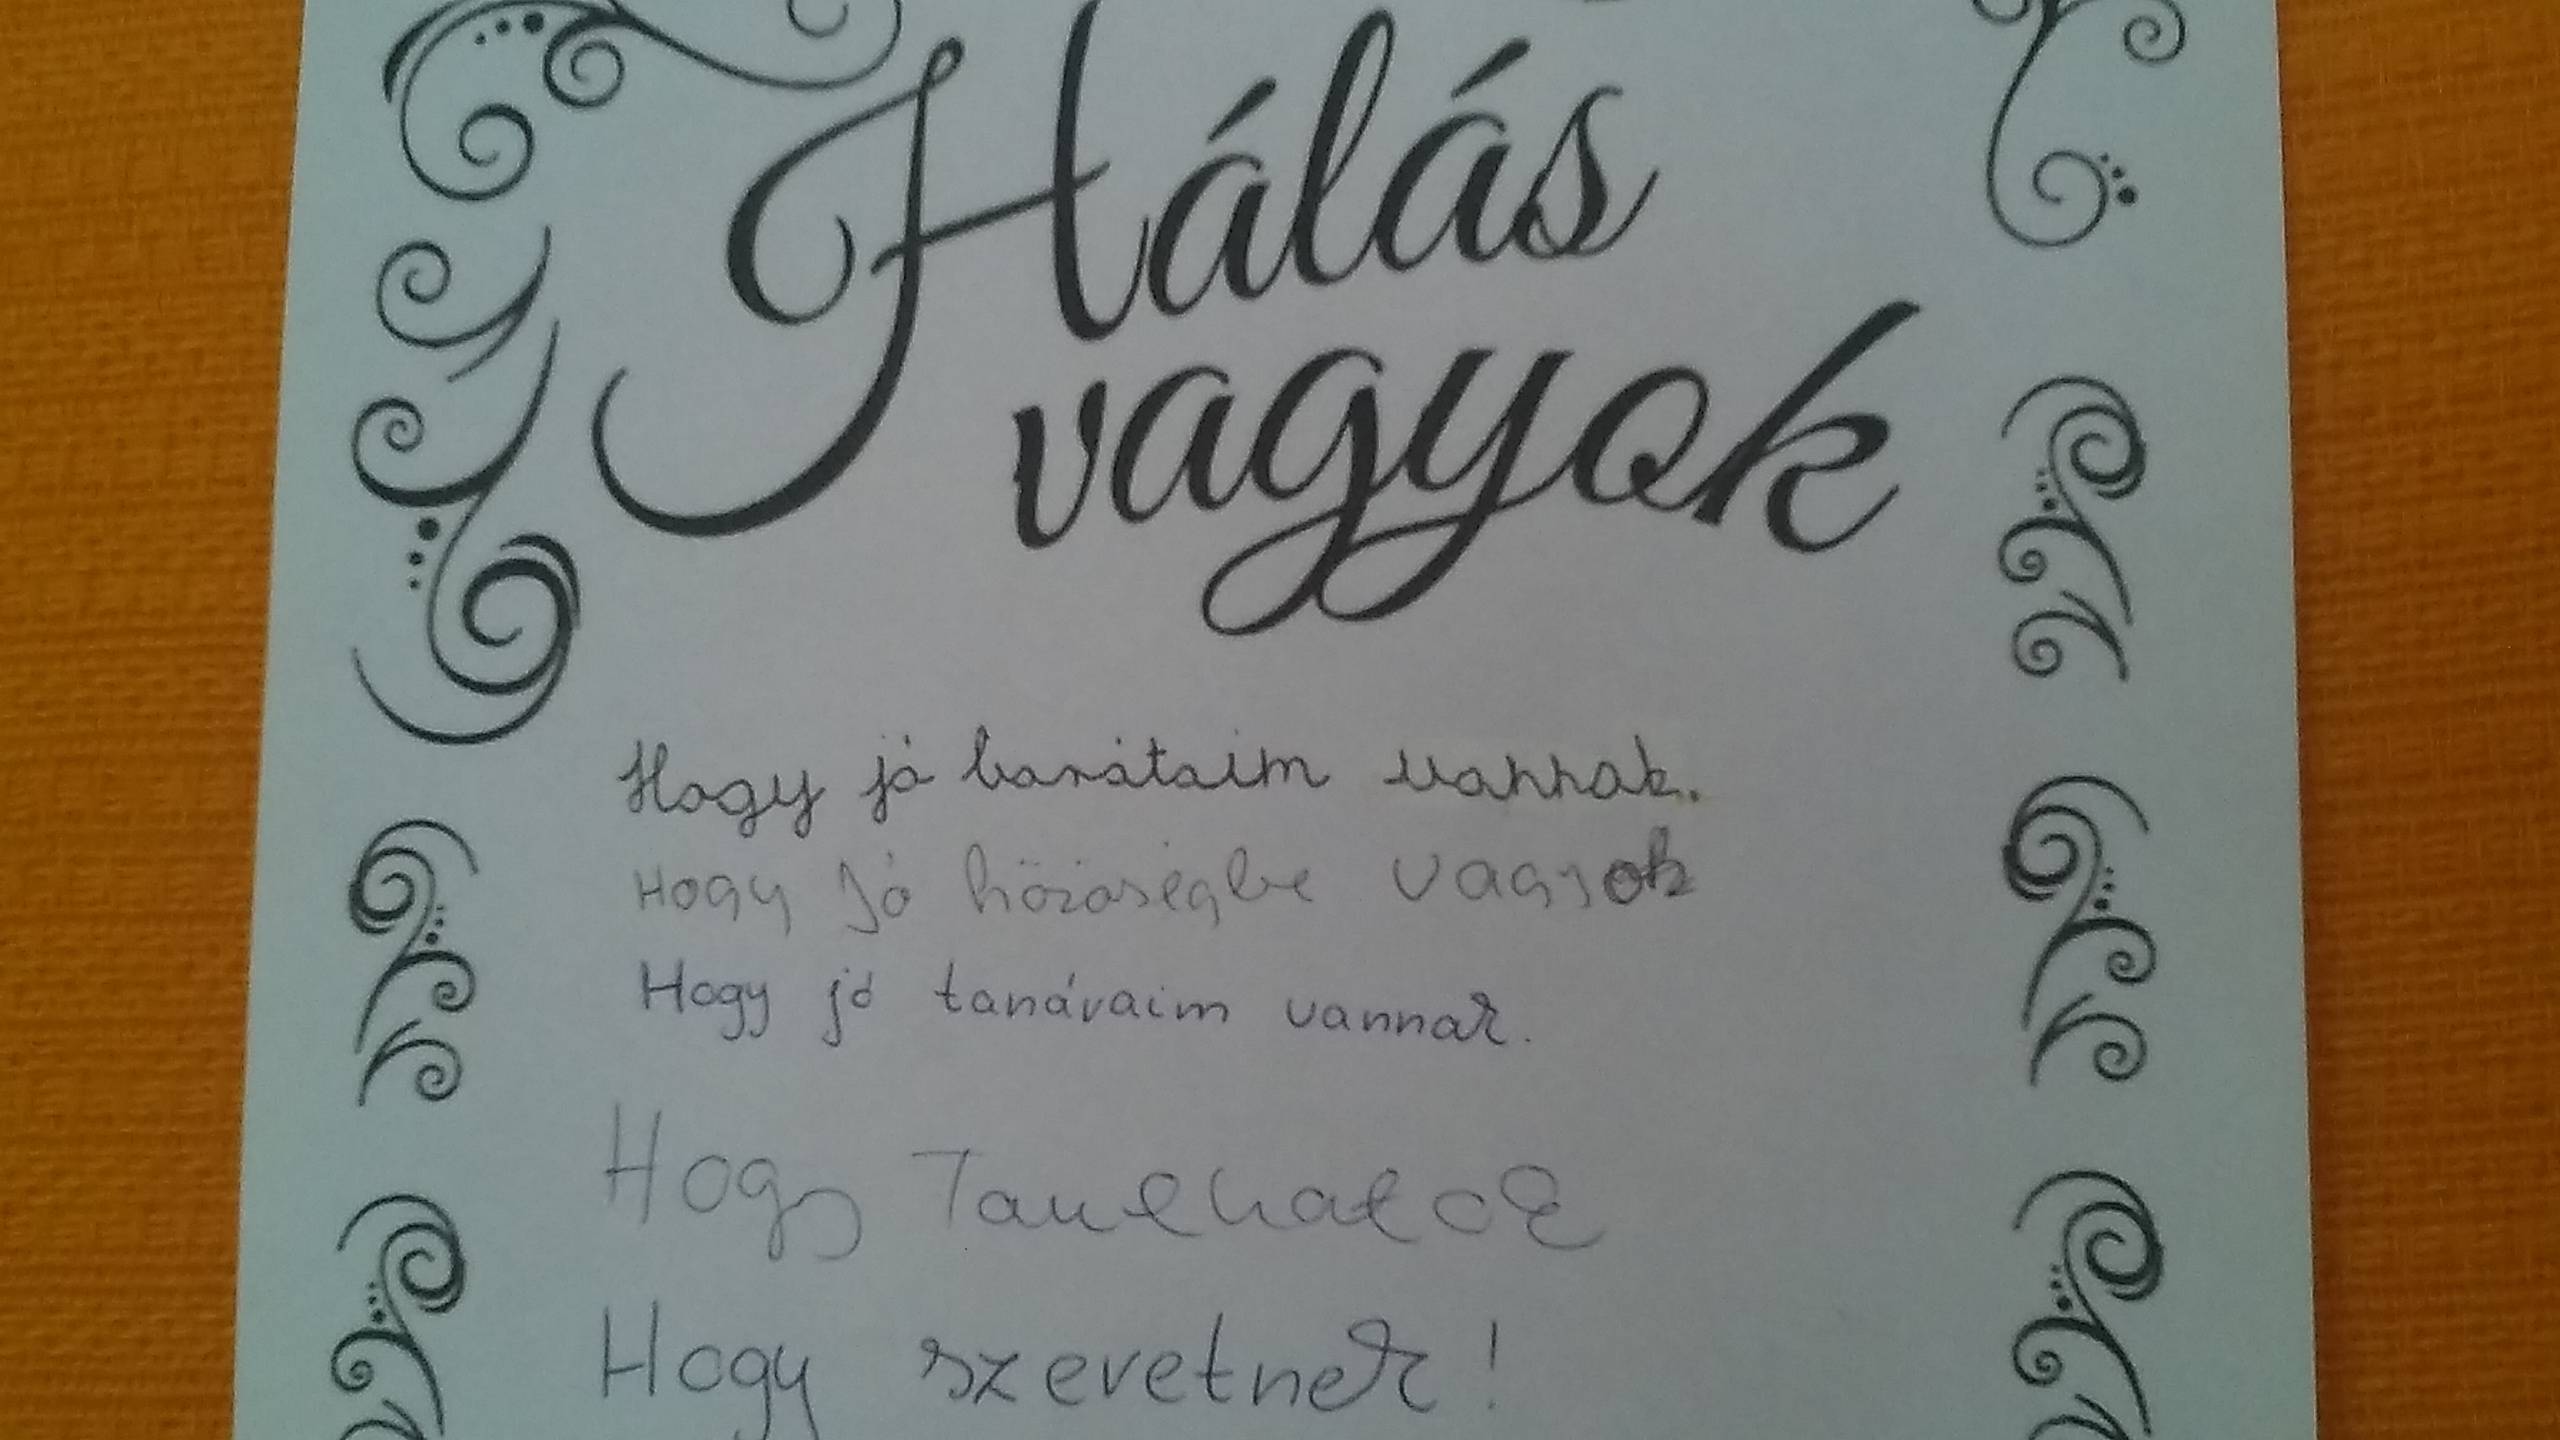 Hálás
vagyok
Hogy jó barátaim vannak.
Hogy jó közösségbe vagyok
Hogy jó tanáraim vannak.
Hogy Tanulhatok
Hogy szeretnek!